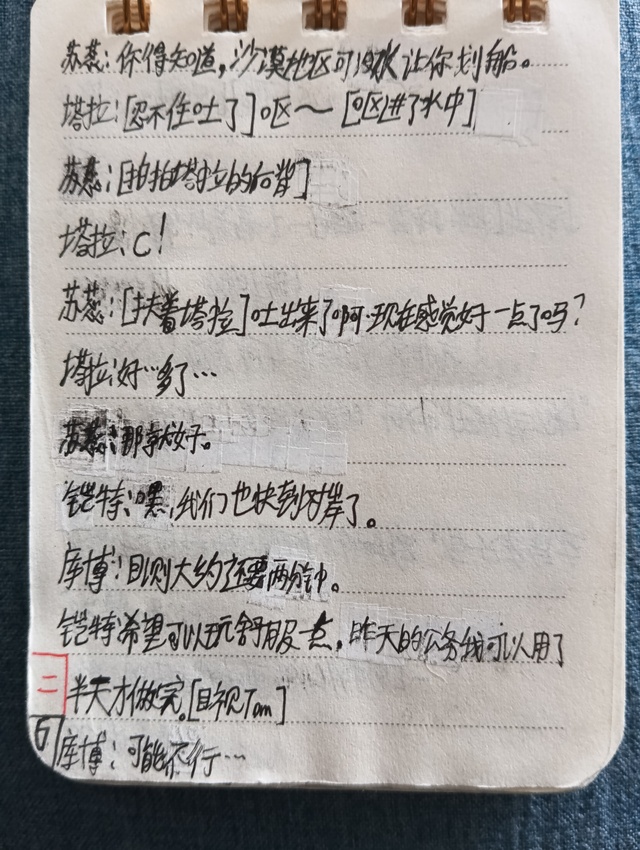 苏蕊:你得知道,沙漠地区可没水让你划船。
塔拉:[忍不住吐了]呕～[呕进了水中]
苏蕊:[拍拍塔拉的后背]
塔拉:C!
苏蕊:[扶着塔拉]吐出来了啊.现在感觉好一点了吗?
塔拉:好…多了…
苏蕊:那就好。
铠特:嘿,我们也快到对岸了。
库博:目测大约还要两分钟。
铠特:希望可以玩舒服一点,昨天的公务我可以用了
二 半天才做完.[目视Tom]
6 库博:可能不行…